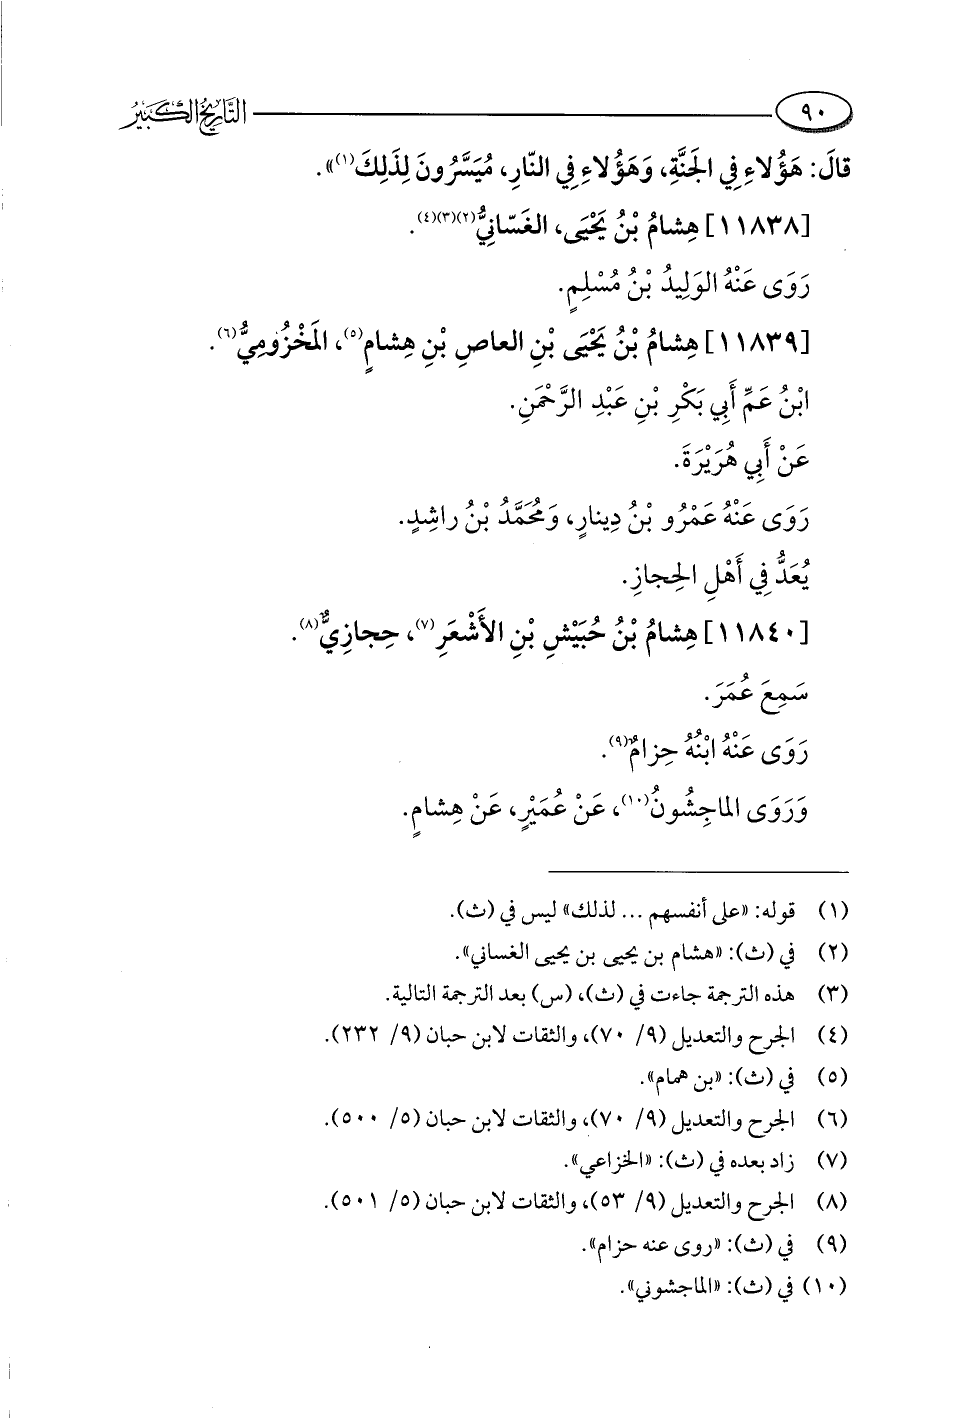 ٩٠ التاريخ الكبير
قالَ: هَؤُلاءِ فِي الجَنَّةِ، وَهَؤُلاءِ فِي النَّارِ، مُيَسَّرُونَ لِذَلِكَ(١)».
[١١٨٣٨] هِشامُ بْنُ يَحْيَى، الغَسّانِيُّ(٢)(٣)(٤).
رَوَى عَنْهُ الوَلِيدُ بْنُ مُسْلِمٍ.
[١١٨٣٩] هِشامُ بْنُ يَحْيَى بْنِ العاصِ بْنِ هِشامٍ(٥)، المَخْزُومِيُّ(٦).
ابْنُ عَمِّ أَبِي بَكْرِ بْنِ عَبْدِ الرَّحْمَنِ.
عَنْ أَبِي هُرَيْرَةَ.
رَوَى عَنْهُ عَمْرُو بْنُ دِينارٍ، وَمُحَمَّدُ بْنُ راشِدٍ.
يُعَدُّ فِي أَهْلِ الحِجازِ.
[١١٨٤٠] هِشامُ بْنُ حُبَيْشِ بْنِ الأَشْعَرِ(٧)، حِجازِيٌّ(٨).
سَمِعَ عُمَرَ.
رَوَى عَنْهُ ابْنُهُ حِزامٌ(٩).
وَرَوَى الماجِشُونُ(١٠)، عَنْ عُمَيْرٍ، عَنْ هِشامٍ.
(١) قوله: «على أنفسهم ... لذلك» ليس في (ث).
(٢) في (ث): «هشام بن يحيى بن يحيى الغساني».
(٣) هذه الترجمة جاءت في (ث)، (س) بعد الترجمة التالية.
(٤) الجرح والتعديل (٩/ ٧٠)، والثقات لابن حبان (٩/ ٢٣٢).
(٥) في (ث): «بن همام».
(٦) الجرح والتعديل (٩/ ٧٠)، والثقات لابن حبان (٥/ ٥٠٠).
(٧) زاد بعده في (ث): «الخزاعي».
(٨) الجرح والتعديل (٩/ ٥٣)، والثقات لابن حبان (٥/ ٥٠١).
(٩) في (ث): «روى عنه حزام».
(١٠) في (ث): «الماجشوني».